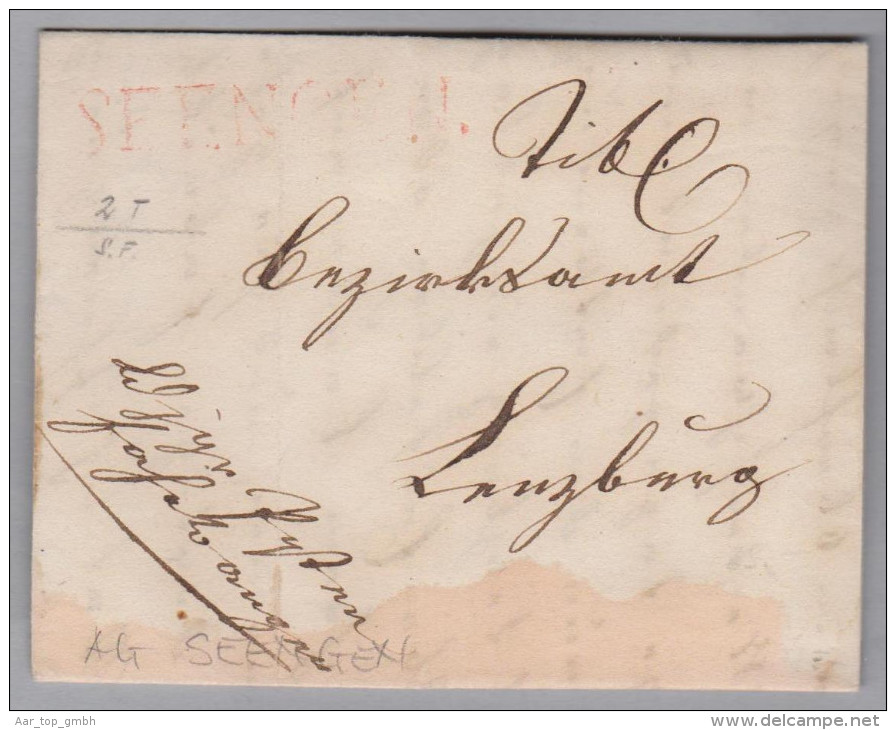 SEENGEN.
Titl.
Bezirksamt
Lenzburg
2 T
S.F.
AG SEENGEN
Aar_top_gmbh
www.delcampe.net